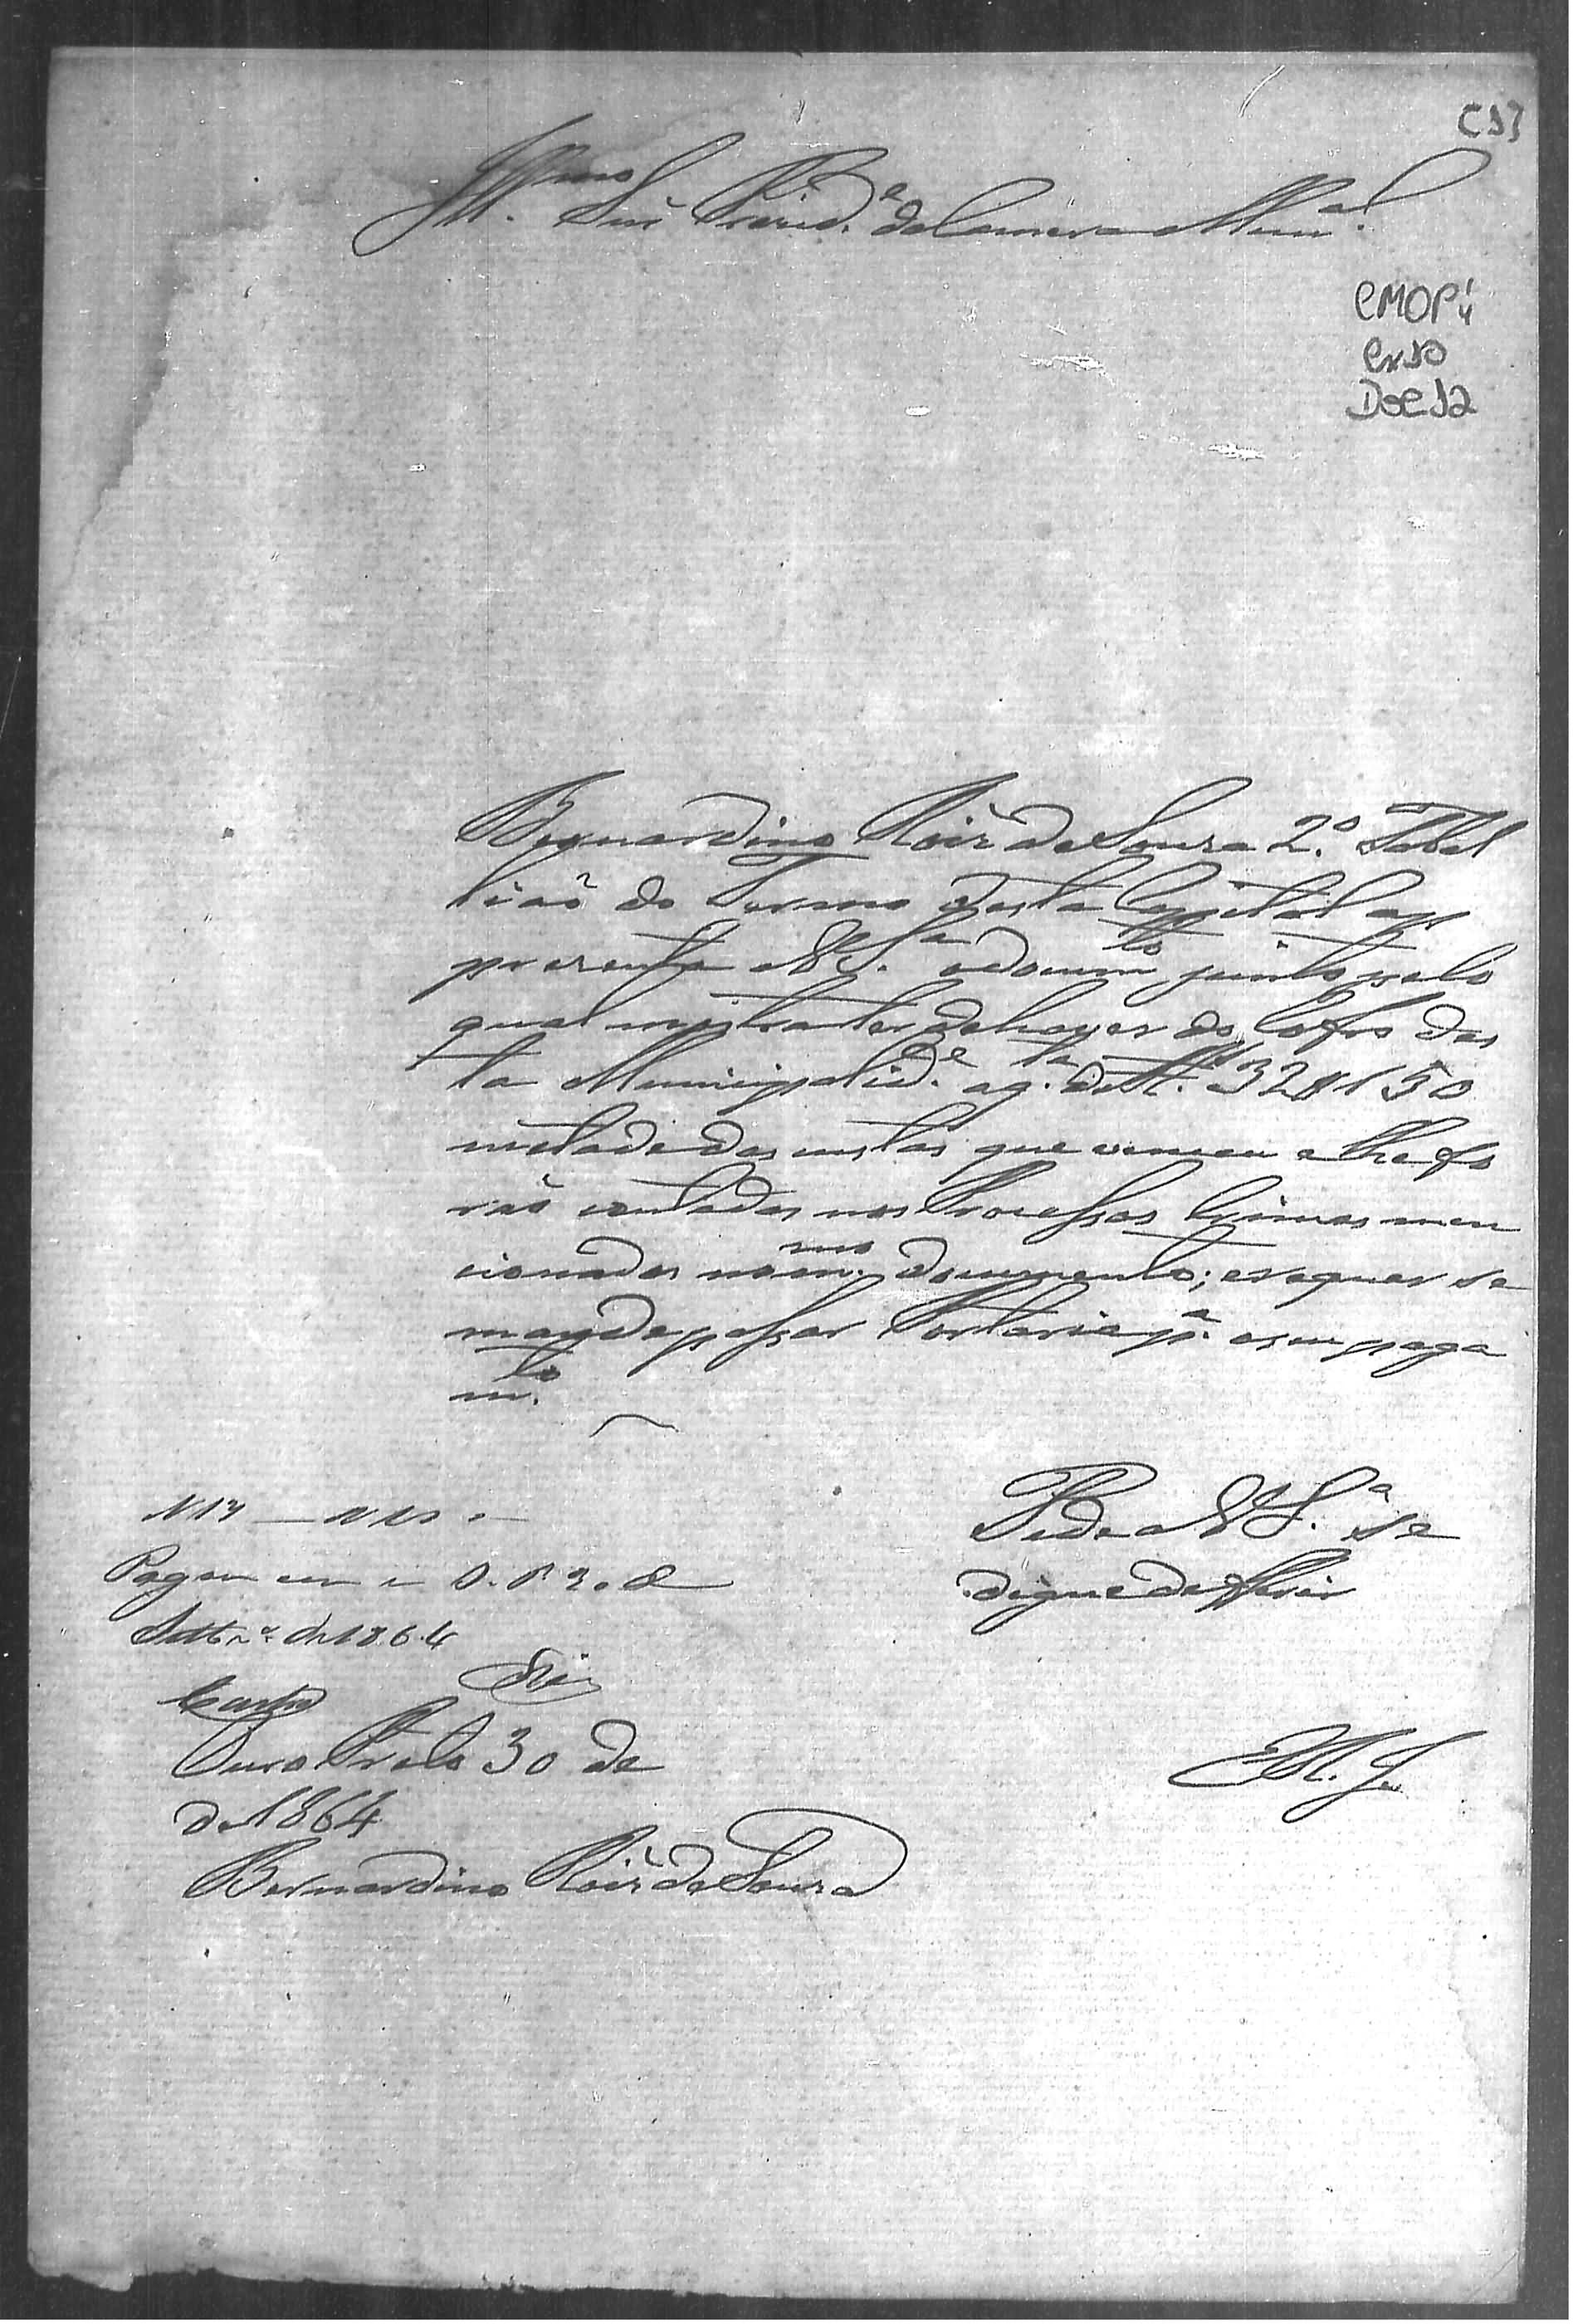 [13]
Ill.mo Snr Presid.e da Camera Mun.al
CMOP 1/4
Cx 10
Doc 12
Bernardino Roiz de Souza 2.º Tabel
lião do Termo desta Capital ap
presenta a V S.a o docum.to junto pelo
qual mostra ter de haver do Cofre des
ta Municipalid.e a q.tia de R.s 32$150
metade das custas que venceu e lhe fo
rão contadas nos Processos Crimes men
cionados no m.mo documento; e requer se
mande passar Portaria p.a o seu paga
m.to
Pede a V S.a se
digne deferir
Pague
Settr.º de 1864
Ouro Preto 30 de
de 1864
E R. M.ce
Bernardino Roiz de Souza